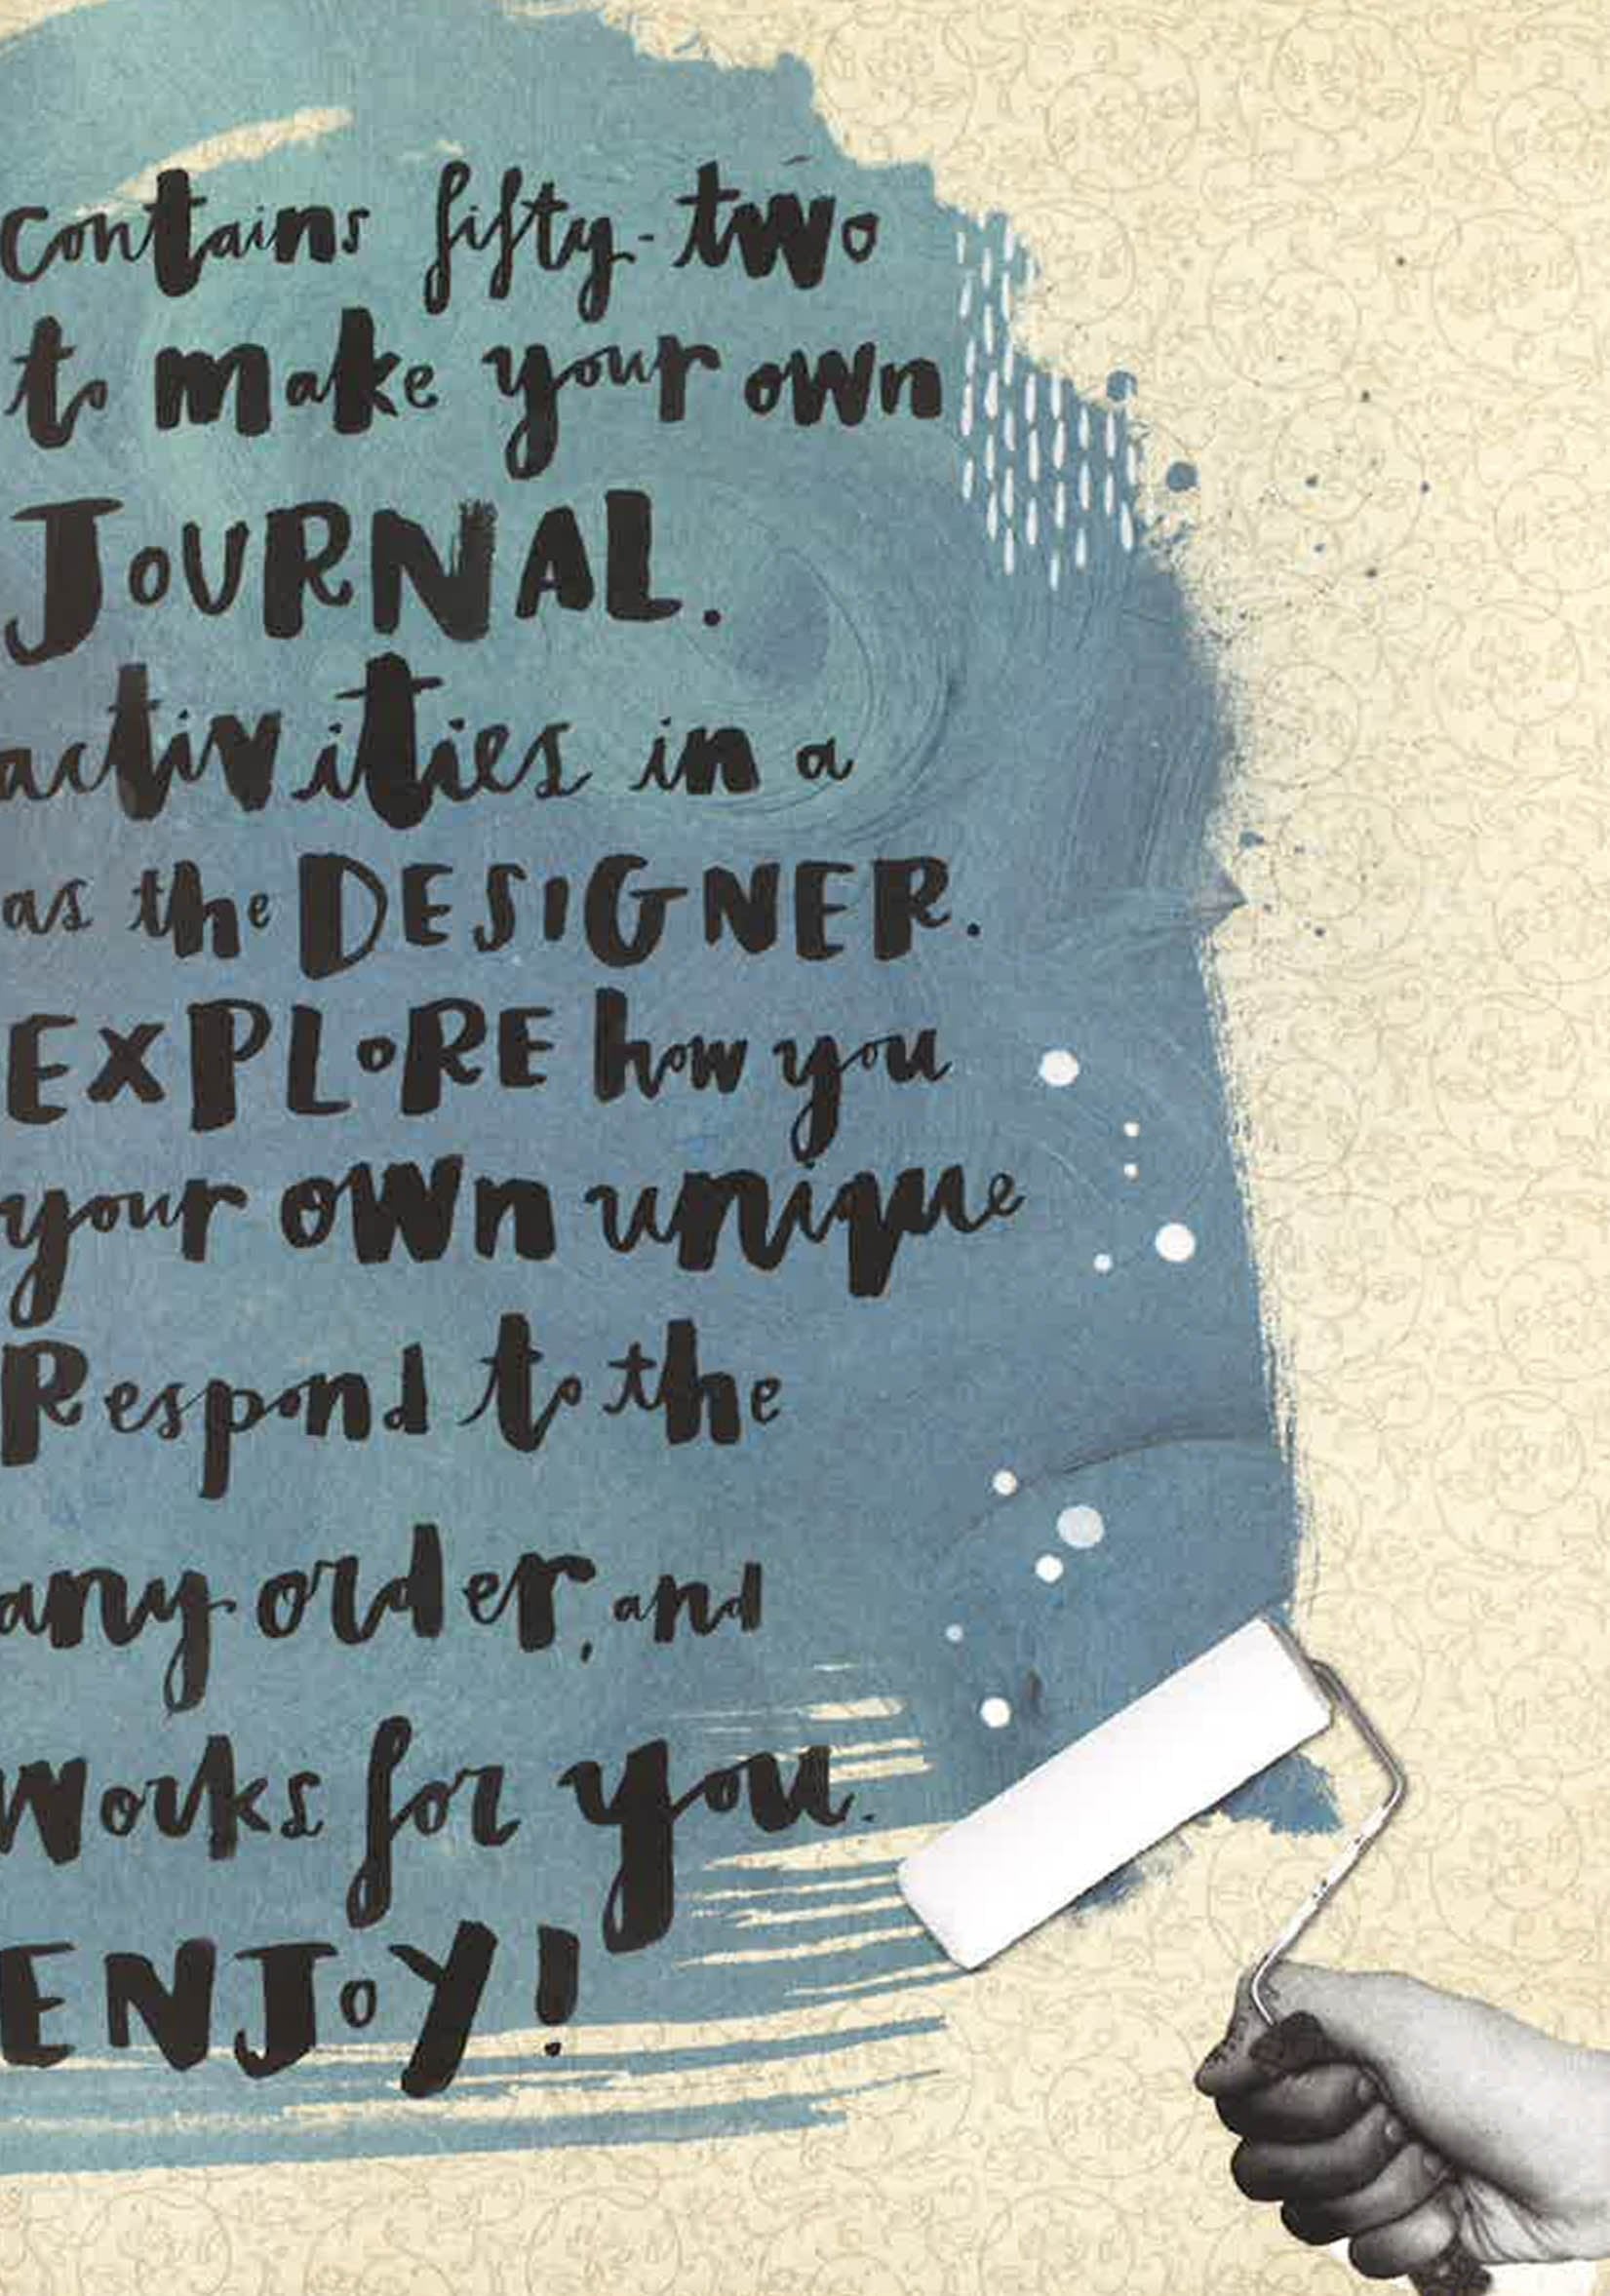 contains fifty-two
to make your own
JOURNAL.
activities in a
as the DESIGNER.
EXPLORE how you
your own unique
Respond to the
any order, and
works for you.
ENJOY!